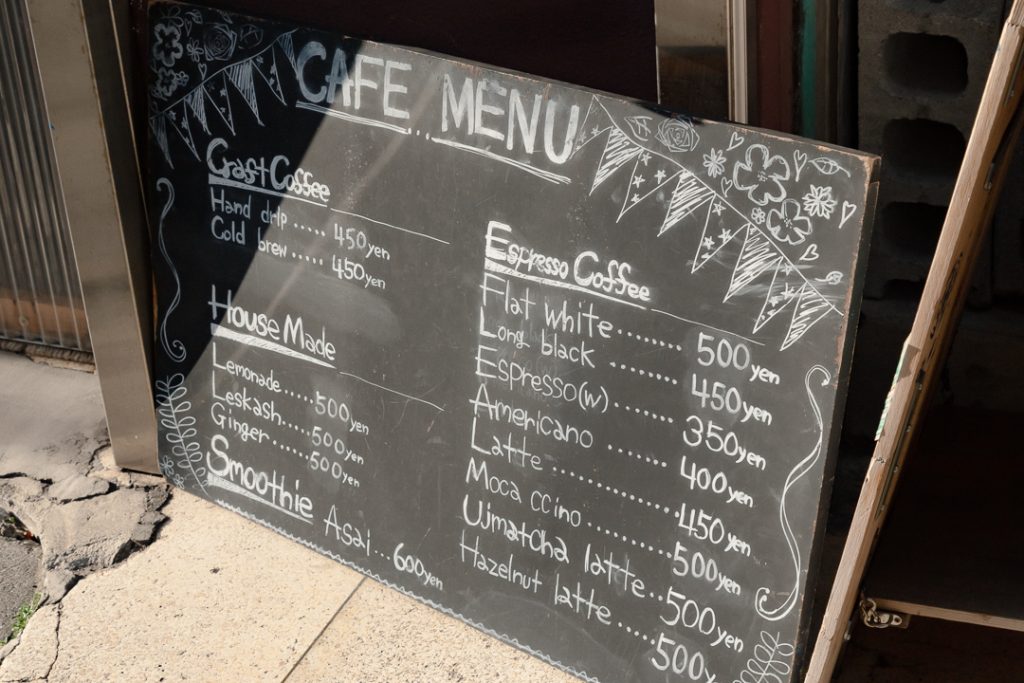 CAFE...MENU
Craft Coffee
Hand drip.....450yen
Cold brew.....450yen
House Made
Lemonade.....500yen
Laskash.....500yen
Ginger.....500yen
Smoothie
Asai...600yen
Espresso Coffee
Flat white......500yen
Long black.......450yen
Espresso(w).......350yen
Americano.......400yen
Latte............450yen
Moca ccino.........500yen
Ujmatcha latte..500yen
Hazelnut latte....500y